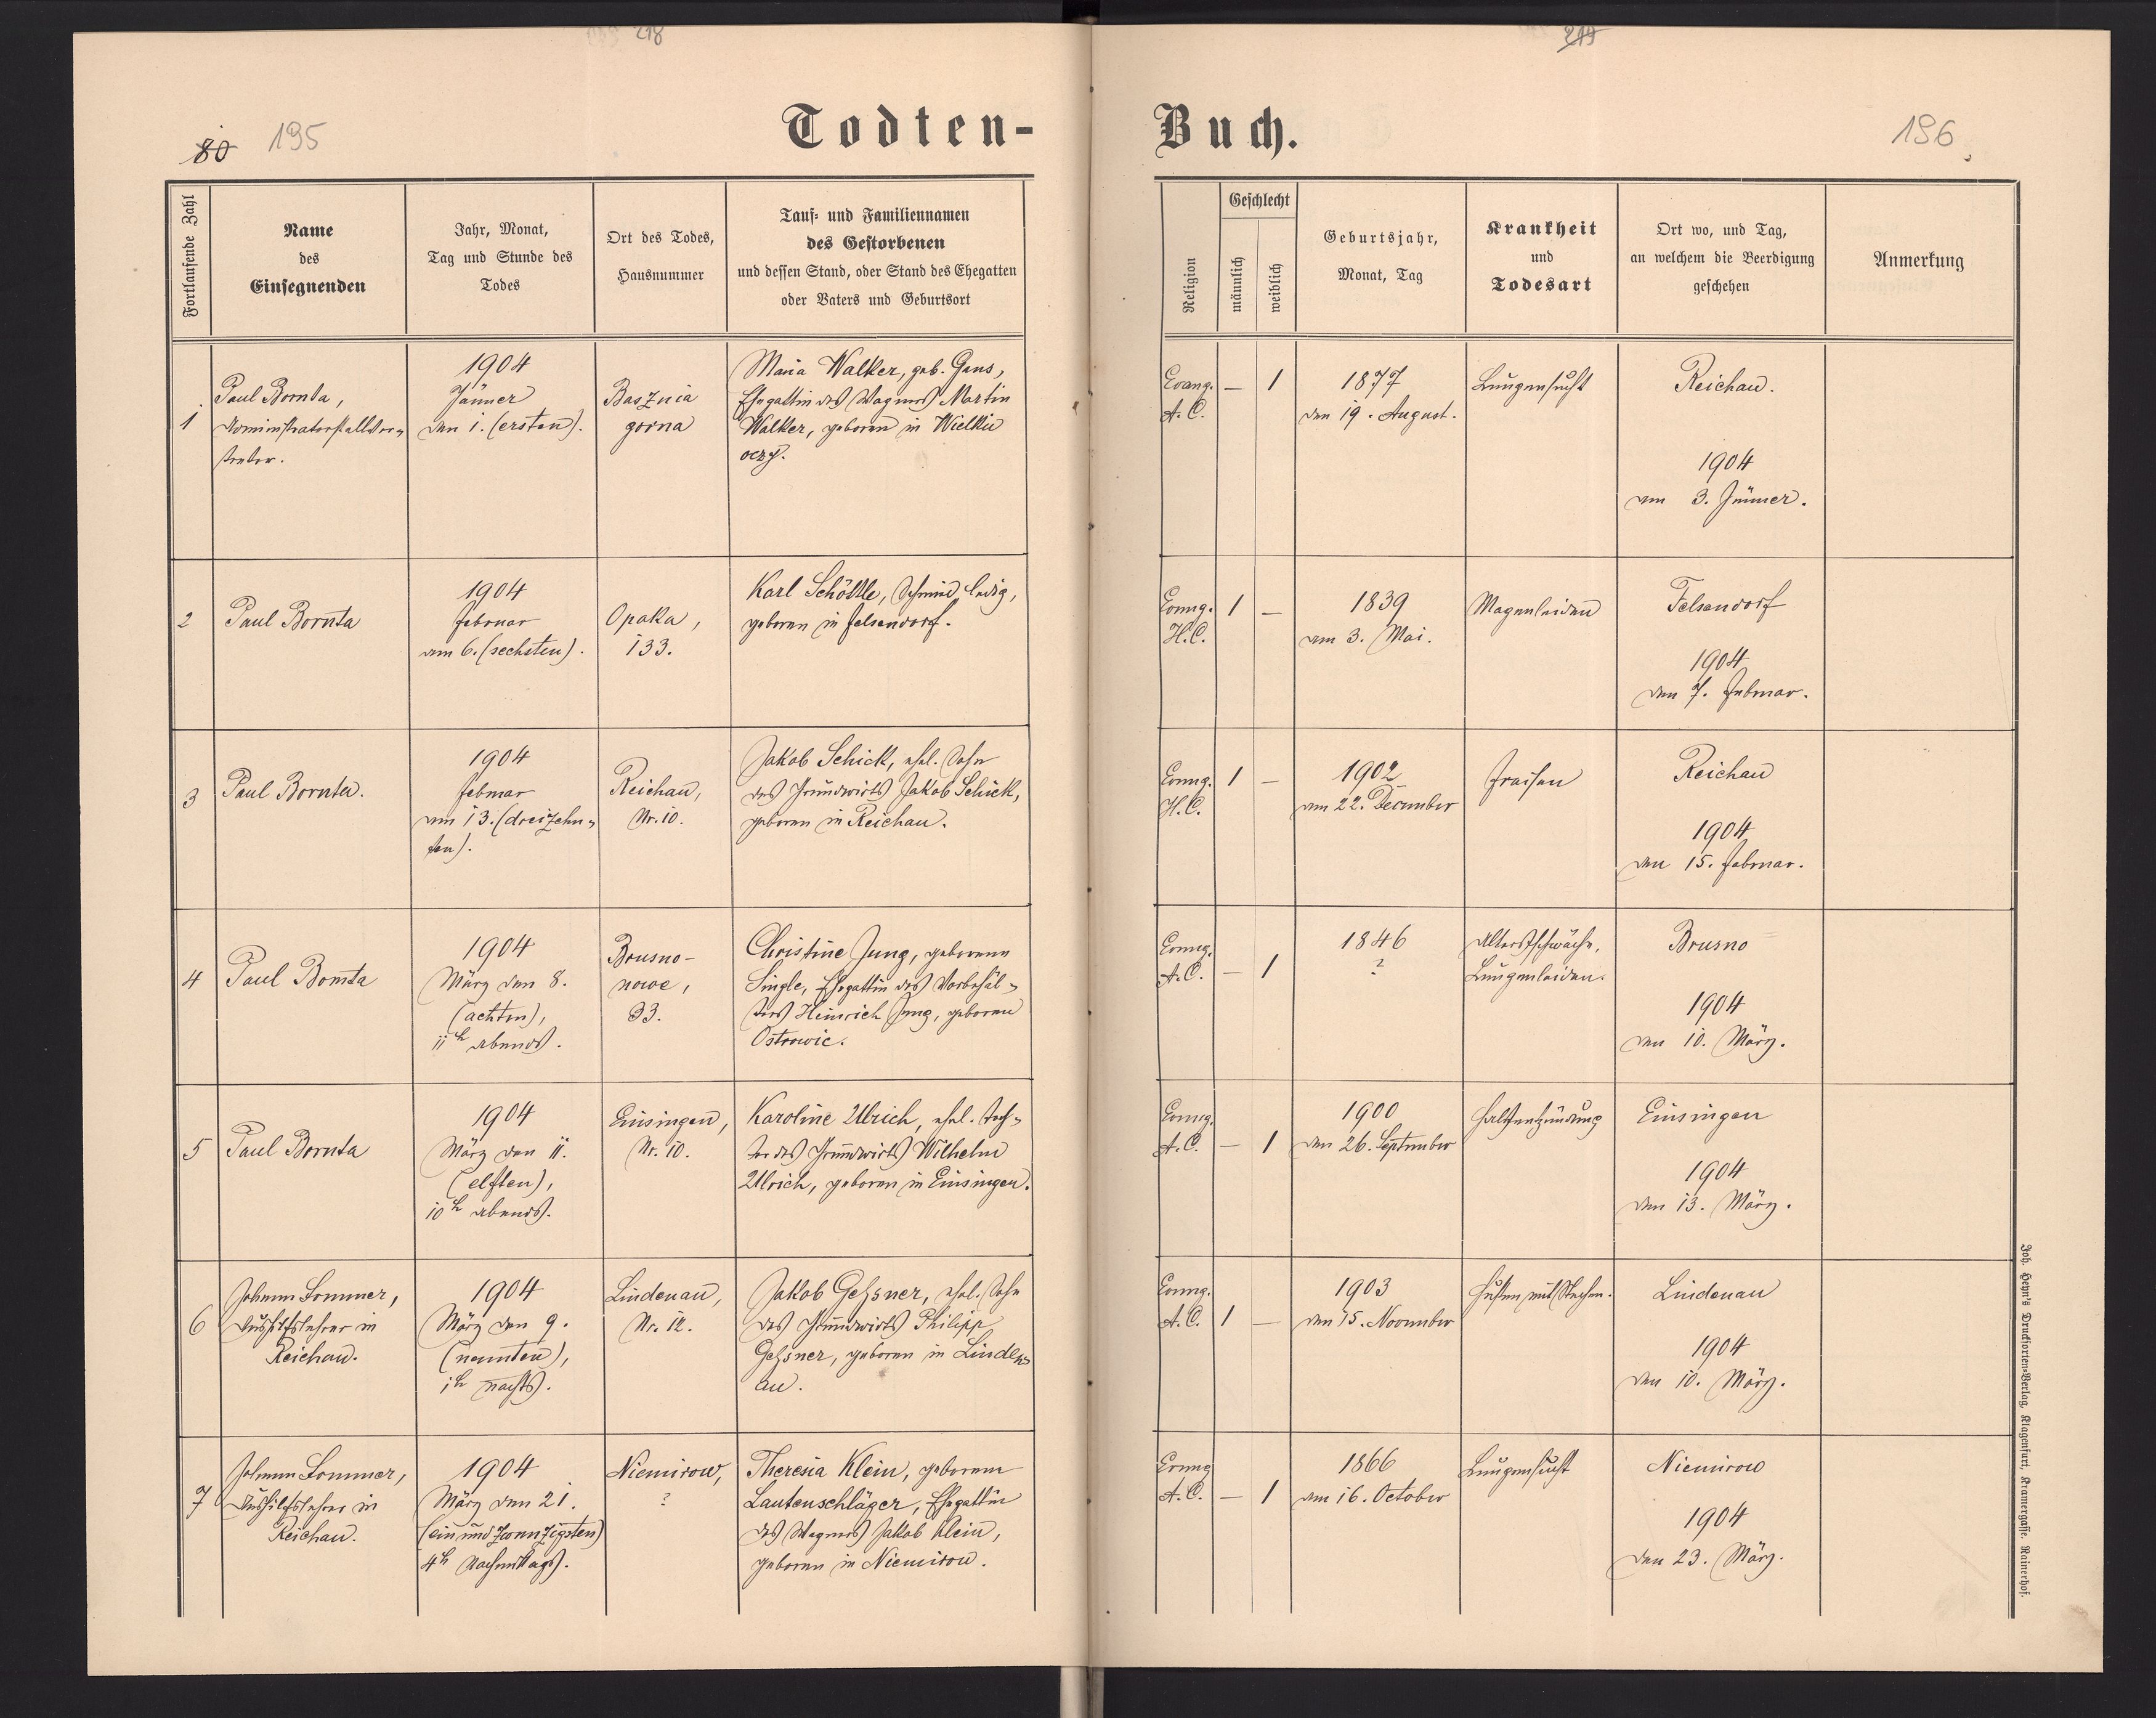 218
219
80 195
Todten-
Buch.
196
Fortlaufende Zahl
Name
des
Einsegnenden
Jahr, Monat,
Tag und Stunde des
Todes
Ort des Todes,
Hausnummer
Tauf- und Familiennamen
des Gestorbenen
und dessen Stand, oder Stand des Ehegatten
oder Vaters und Geburtsort
Religion
Geschlecht
männlich
weiblich
Geburtsjahr,
Monat, Tag
Krankheit
und
Todesart
Ort wo, und Tag,
an welchem die Beerdigung
geschehen
Anmerkung
1
Paul Bornta,
Administratorstellver-
treter.
1904
Jänner
den 1. (ersten).
Basznia
gorna
Maria Walker, geb. Gans,
Ehegattin des Wagners Martin
Walker, geboren in Wielkie
oczy.
Evang.
A. C.
— 1
1877
den 19. August.
Lungensucht
Reichau.
1904
am 3. Jänner.
2
Paul Bornta
1904
Februar
am 6. (sechsten).
Opaka,
133.
Karl Schöttle, Schmied, ledig,
geboren in Felsendorf.
Evang.
H. C.
1 —
1839
am 3. Mai.
Magenleiden
Felsendorf
1904
den 7. Februar.
3
Paul Bornta.
1904
Februar
am 13. (dreizehn-
ten).
Reichau,
Nr. 10.
Jakob Schick, ehel. Sohn
des Grundwirts Jakob Schick,
geboren in Reichau.
Evang.
H. C.
1 —
1902
am 22. December
Fraisen
Reichau
1904
den 15. Februar.
4
Paul Bornta
1904
März den 8.
(achten),
11h abends.
Brusno-
nowe,
33.
Christine Jung, geborene
Single, Ehegattin des Vorbehäl-
ters Heinrich Jung, geboren
Ostrowic.
Evang.
A. C.
— 1
1846
?
Altersschwäche,
Lungenleiden.
Brusno
1904
den 10. März.
5
Paul Bornta
1904
März den 11.
(elften),
10h abends.
Einsingen,
Nr. 10.
Karoline Ulrich, ehel. Toch-
ter des Grundwirts Wilhelm
Ulrich, geboren in Einsingen.
Evang.
A. C.
— 1
1900
den 26. September
Halsentzündung
Einsingen
1904
den 13. März.
6
Johann Sommer,
Aushilfslehrer in
Reichau.
1904
März den 9.
(neunten),
1h nachts.
Lindenau,
Nr. 12.
Jakob Gessner, ehel. Sohn
des Grundwirts Philipp
Gessner, geboren in Linden-
au.
Evang.
A. C.
1 —
1903
den 15. November
Husten mit Stechen.
Lindenau
1904
den 10. März.
7
Johann Sommer,
Aushilfslehrer in
Reichau.
1904
März den 21.
(ein und zwanzigsten)
4h Nachmittags.
Niemirow,
?
Theresia Klein, geborene
Lautenschläger, Ehegattin
des Wagners Jakob Klein,
geboren in Niemirow.
Evang
A. C.
— 1
1866
am 16. October
Lungensucht
Niemirow
1904
den 23. März.
Joh. Heyn's Drucksorten-Verlag, Klagenfurt, Kramergasse, Rainerhof.